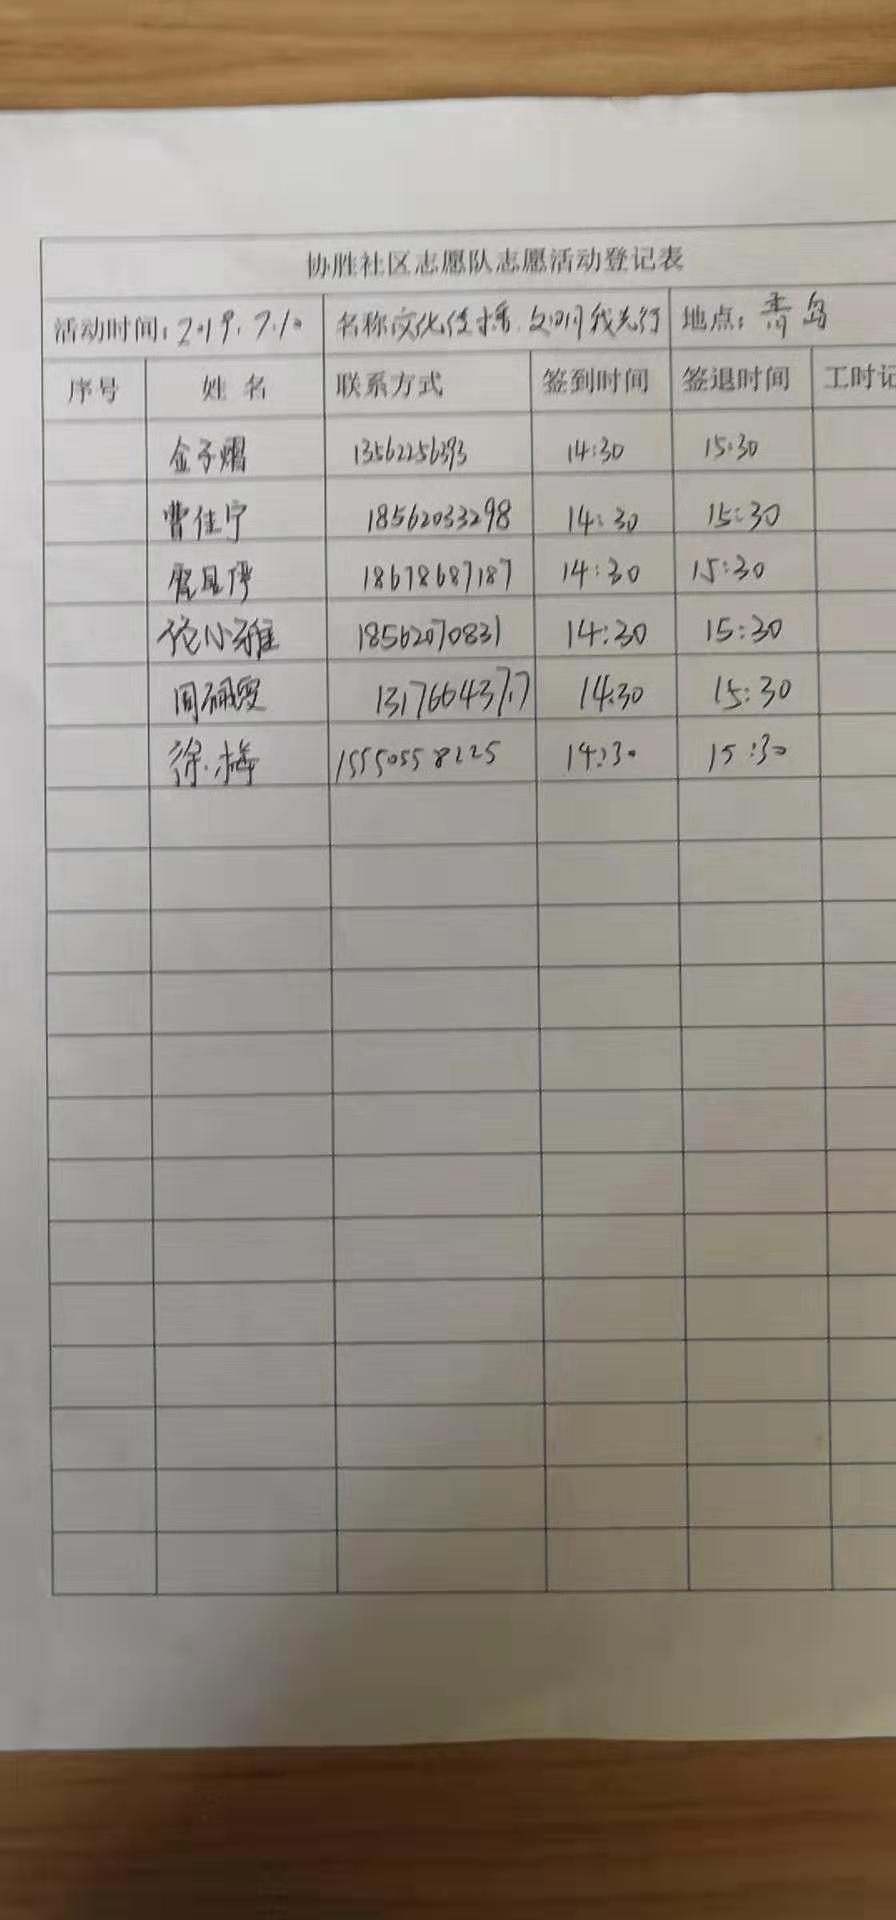 协胜社区志愿队志愿活动登记表
活动时间:2019.7.10 名称文化传播.文明我先行 地点:青岛
序号 姓名 联系方式 签到时间 签退时间 工时记
金子熠 13562256393 14:30 15:30
曹佳宁 18562033298 14:30 15:30
18678687187 14:30 15:30
小雅 18562070831 14:30 15:30
14:30 15:30
徐梅 15550558225 14:30 15:30